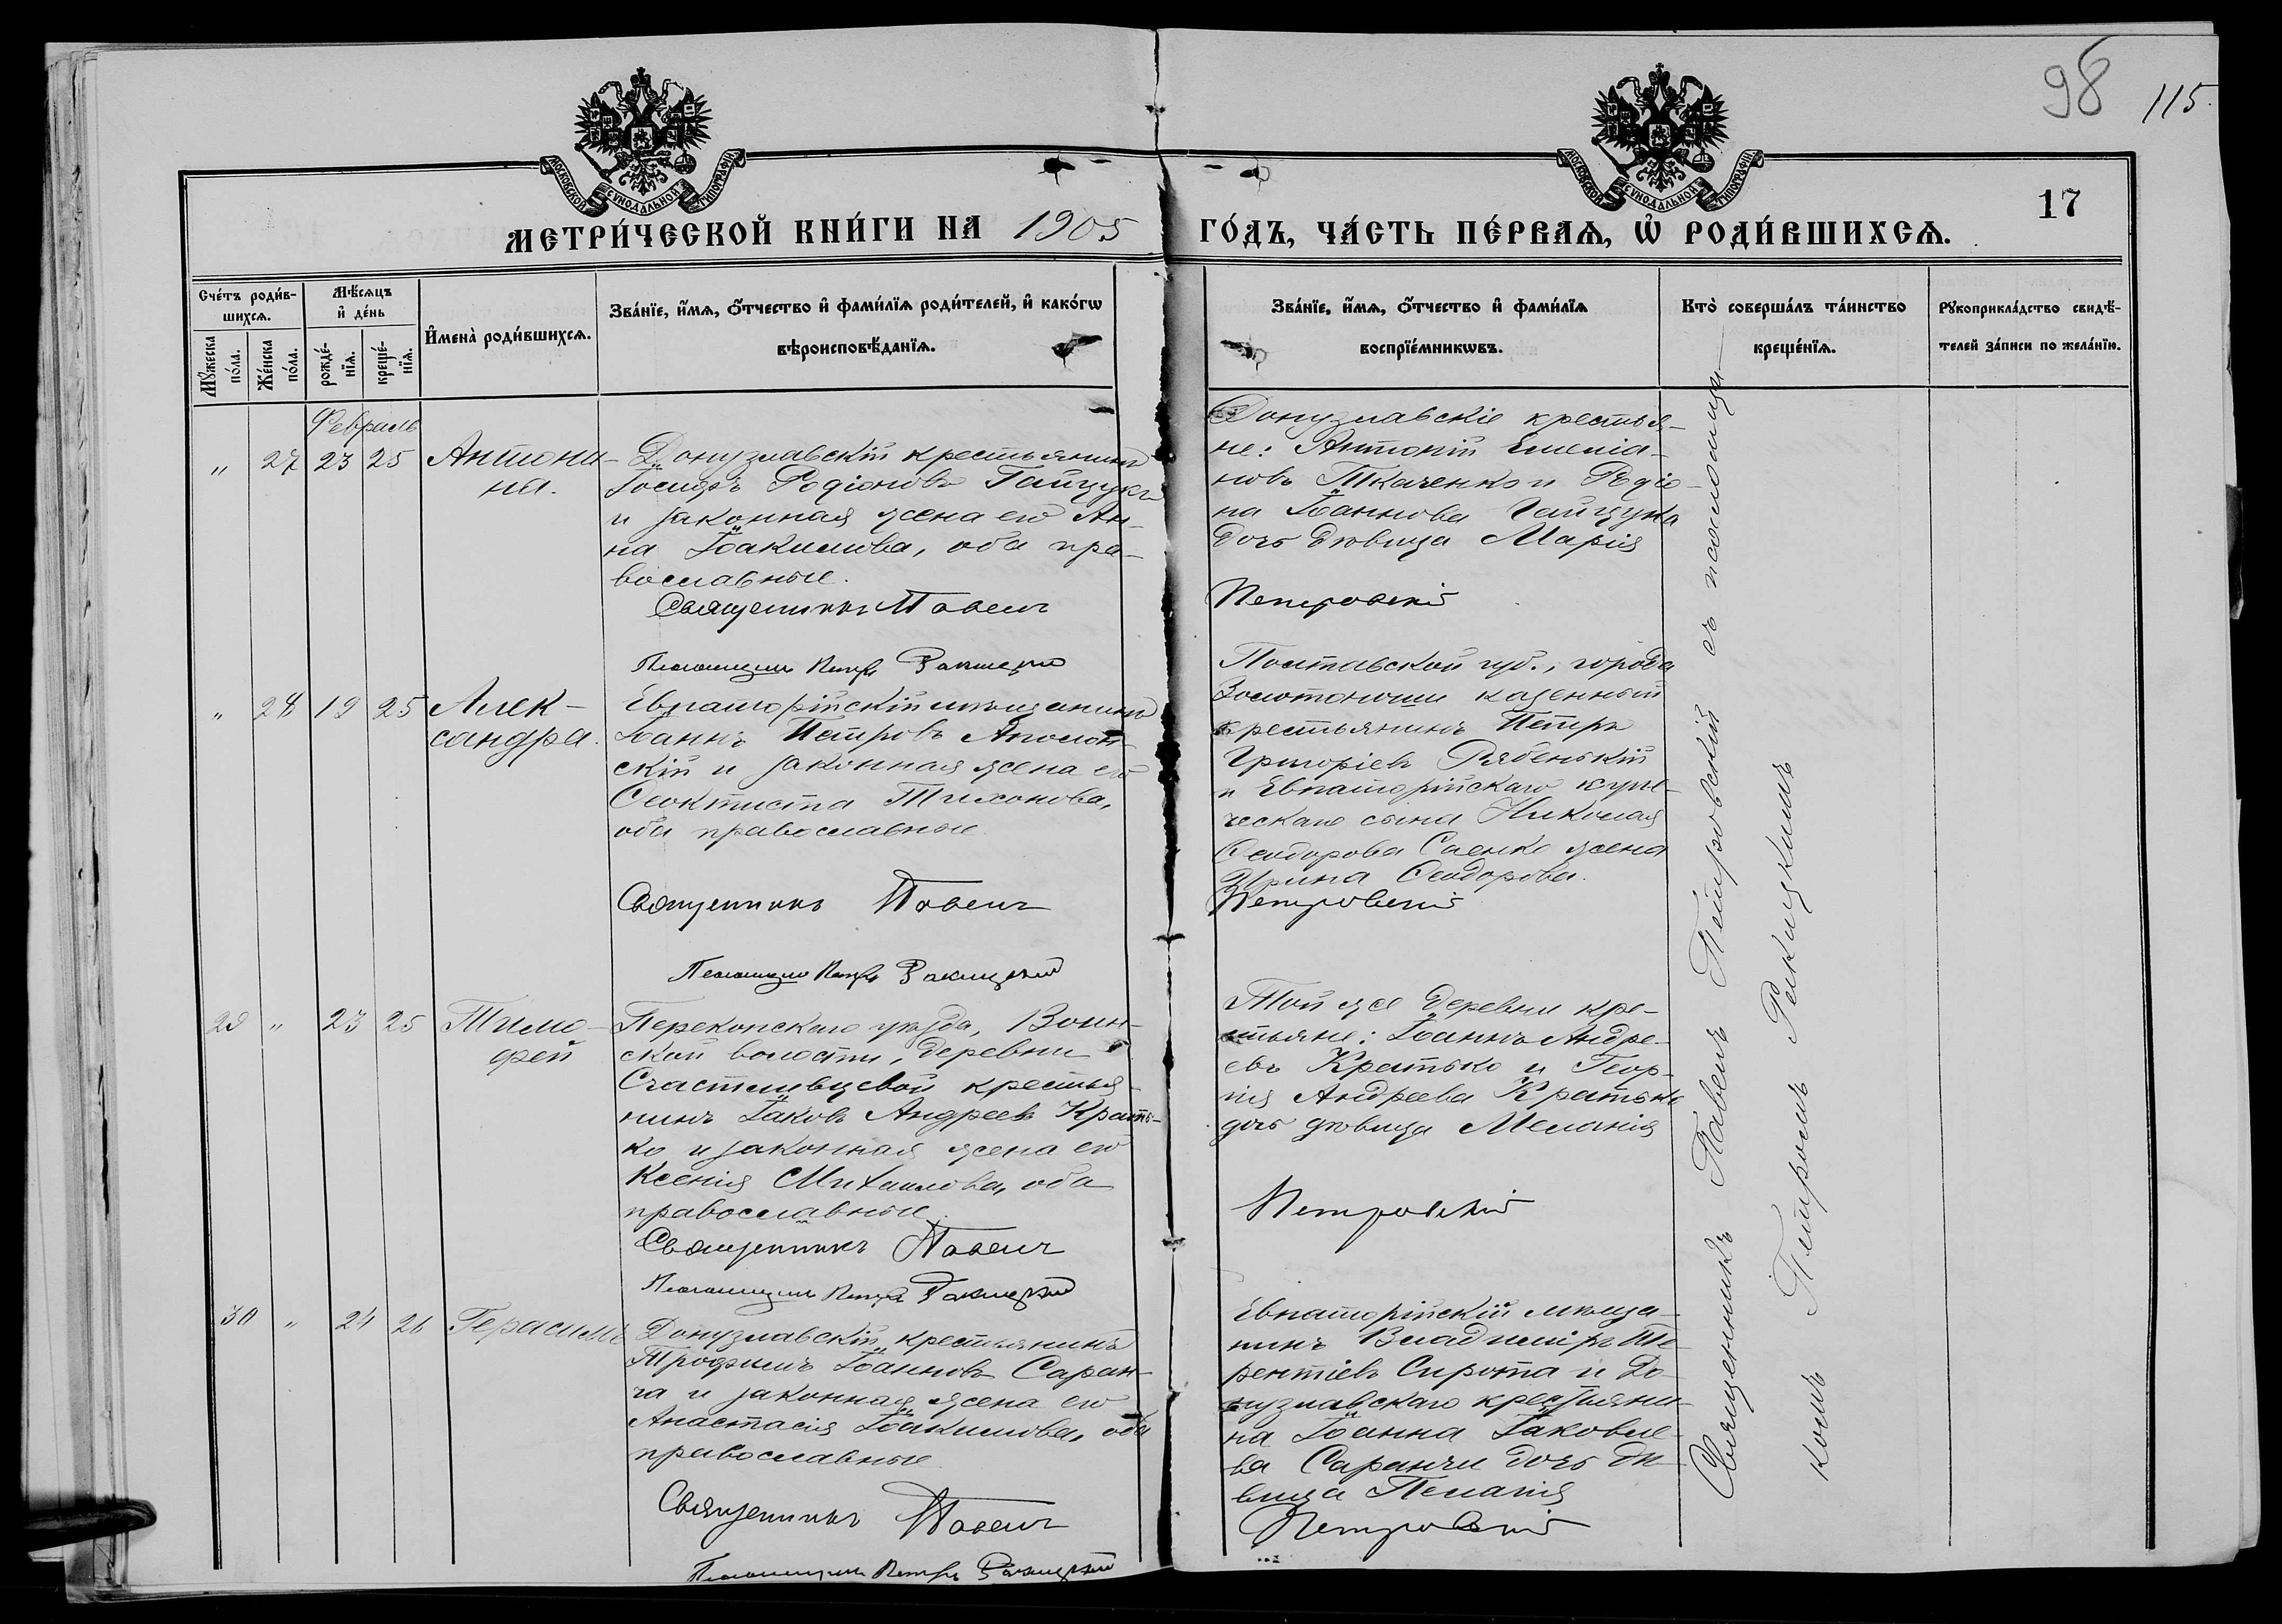 98 115
МОСКОВСКОЙ СѴНОДАЛЬНОЙ ТИПОГРАФІИ
МОСКОВСКОЙ СѴНОДАЛЬНОЙ ТИПОГРАФІИ
17
МЕТРИ́ЧЕСКОЙ КНИ́ГИ НА 1905 ГО́ДЪ, ЧА́СТЬ ПЕ́РВАѦ, Ѡ҆ РОДИ́ВШИХСѦ.
Счéтъ роди́в-
шихсѧ.
Мꙋ́жеска по́ла.
Же́нска по́ла.
Мѣ́сѧцъ
и҆ де́нь
рожде́-
нїѧ.
креще́-
нїѧ.
И҆мена̀ роди́вшихсѧ.
Зва́нїе, и҆́мѧ, ѻ҆́тчество и҆ фами́лїѧ роди́телей, и҆ како́гѡ
вѣроисповѣ́данїѧ.
Зва́нїе, и҆́мѧ, ѻ҆́тчество и҆ фами́лїѧ
воспрїе́мникѡвъ.
Кто̀ соверша́лъ та́инство
креще́нїѧ.
Рꙋкоприкла́дство свидѣ́-
телей за́писи по жела́нїю.
Февраль
" 27 23 25 Антони-
на.
Донузлавскій крестьянинъ
Іосифъ Родіоновъ Гайцукъ
и законная жена его Ан-
на Іоакимова, оба пра-
вославные.
Священникъ Павелъ
Псаломщикъ Петръ Ракицкій
Донузлавскіе крестья-
не: Антоній Емелiа-
новъ Ткаченко и Родіо-
на Іоаннова Гайцука
дочь дѣвица Марія
Петровскій
" 28 19 25 Алек-
сандра.
Евпаторійскій мѣщанинъ
Іоаннъ Петровъ Аполон-
скій и законная жена его
Ѳеоктиста Тихонова,
оба православные.
Священникъ Павелъ
Псаломщикъ Петръ Ракицкій
Полтавской губ., города
Золотоноши казенный
крестьянинъ Петръ
Григоріевъ Рябенькій
и Евпаторійскаго купе-
ческаго сына Николая
Ѳеодорова Саенко жена
Ирина Ѳеодорова.
Петровскій
29 " 23 25 Тимо-
фей
Перекопскаго уѣзда, Воин-
ской волости, деревни
Счастливцевой крестья-
нинъ Іаковъ Андреевъ Крать-
ко и законная жена его
Ксенія Михаилова, оба
православные.
Священникъ Павелъ
Псаломщикъ Петръ Ракицкій
Той же деревни кре-
стьяне: Іоаннъ Андре-
евъ Кратько и Геор-
гія Андреева Кратько
дочь дѣвица Меланія
Петровскій
30 " 24 26 Герасимъ
Донузлавскій крестьянинъ
Трофимъ Іоанновъ Саран-
ча и законная жена его
Анастасія Іоакимова, оба
православные
Священникъ Павелъ
Псаломщикъ Петръ Ракицкій
Евпаторійскій мѣща-
нинъ Владиміръ Те-
рентіевъ Сирота и До-
нузлавскаго крестьяни-
на Іоанна Іаковле-
ва Саранчи дочь дѣ-
вица Пелагія
Петровскій
Священникъ Павелъ Петровскій съ псаломщи-
комъ Петромъ Ракицкимъ